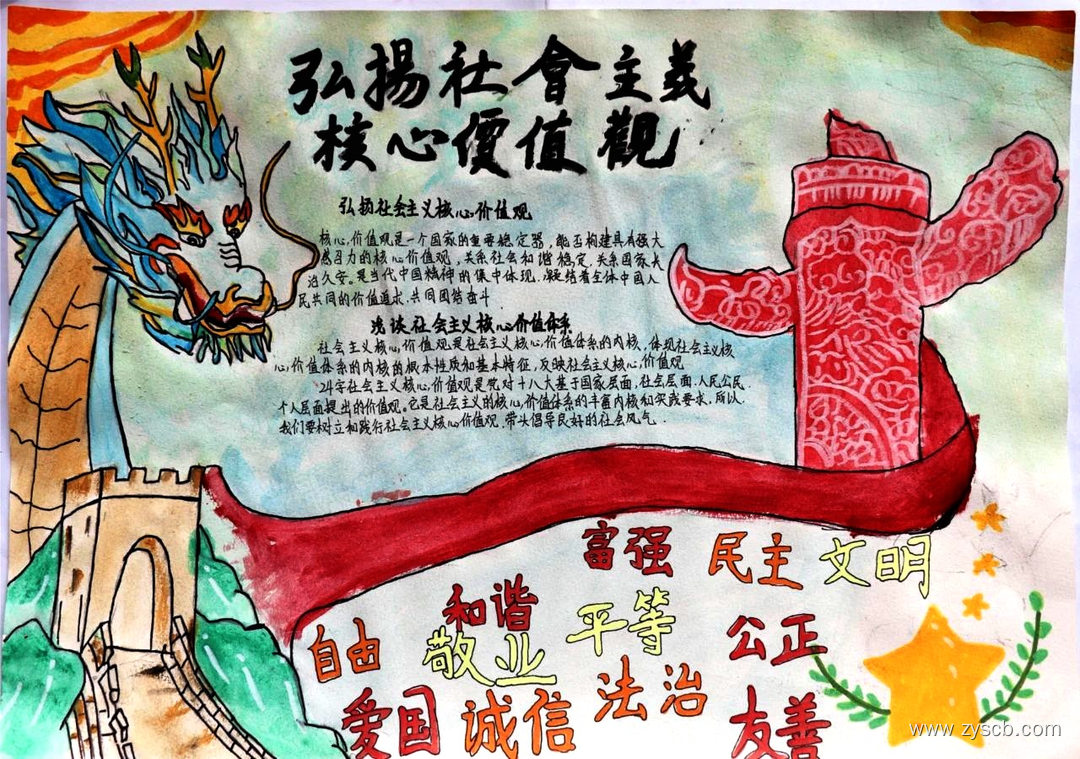 弘揚社會主義
核心價值觀
弘扬社会主义核心价值观
核心价值观是一个国家的重要稳定器，能否构建具有强大
感召力的核心价值观，关系社会和谐稳定，关系国家长
治久安。是当代中国精神的集中体现，凝结着全体中国人
民共同的价值追求，共同团结奋斗.
浅谈社会主义核心价值体系
社会主义核心价值观是社会主义核心价值体系的内核，体现社会主义核
心价值体系的内核的根本性质和基本特征，反映社会主义核心价值观
24字社会主义核心价值观是党对十八大基于国家层面.社会层面.人民公民.
个人层面提出的价值观。它是社会主义的核心价值体系的丰富内核和实践要求，所以.
我们要树立和践行社会主义核心价值观，带头倡导良好的社会风气.
富强 民主 文明
和谐 平等 公正
自由 敬业
爱国 诚信 法治 友善
www.zyscb.com